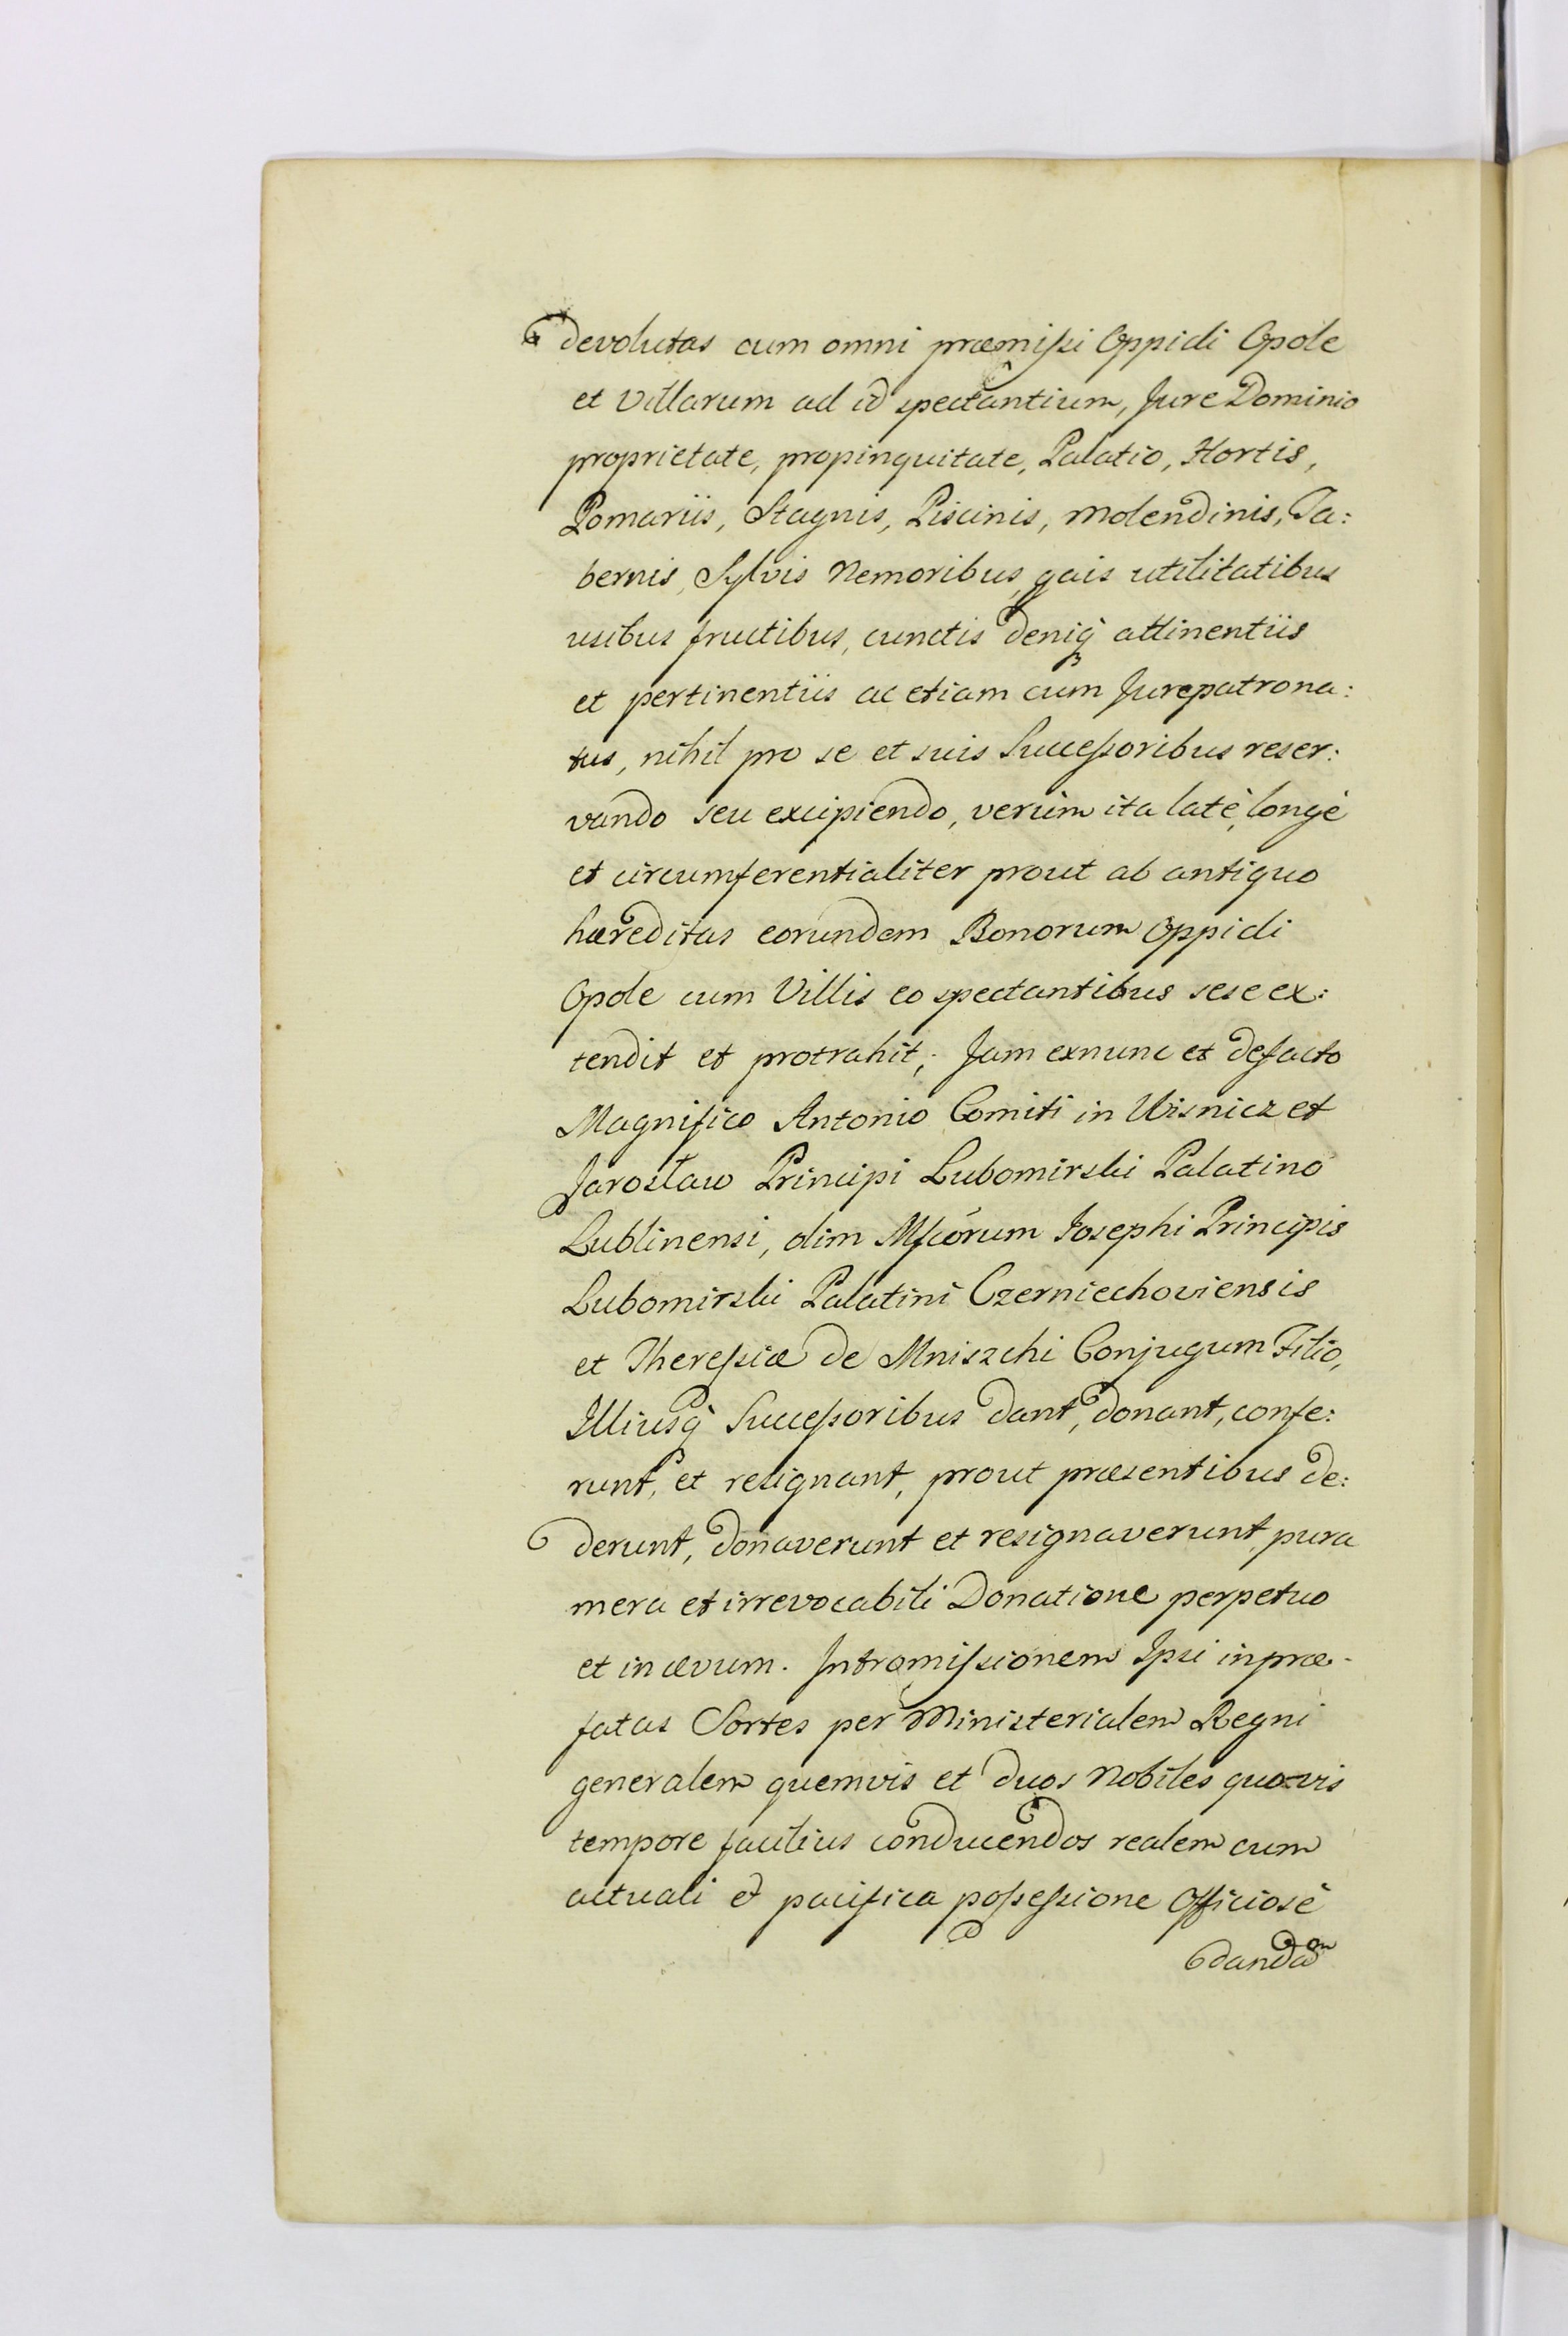 devolutas cum omni præmissi Oppidi Opole
et Villarum ad id spectantium, Jure Dominio
proprietate, propinquitate, Palatio, Hortis,
Pomariis, Stagnis, Piscinis, Molendinis, Ta:
bernis, Sylvis Nemoribus, gais utilitatibus
usibus fructibus, cunctis deniq attinentiis
et pertinentiis ac etiam cum Jurepatrona:
tus, nihil pro se et suis Successoribus reser:
vando seu excipiendo, verùm ita latè, longè
et circumferentialiter prout ab antiquo
hæreditas eorundem Bonorum Oppidi
Opole cum Villis eo spectantibus sese ex:
tendit et protrahit; Jam exnunc et defacto
Magnifico Antonio Comiti in Wisnicz et
Jarosław Principi Lubomirski Palatino
Lublinensi, olim Mfcórum Josephi Principis
Lubomirski Palatini Czerniechoviensis
et Theressiæ de Mniszchi Conjugum Filio,
Illiusq Successoribus dant, donant, confe:
runt, et resignant, prout præsentibus de:
derunt, donaverunt et resignaverunt, pura
mera et irrevocabili Donatione perpetuo
et in ævum. Intromissionem Ipsi in præ-
fatas Sortes per Ministerialem Regni
generalem quemvis et duos Nobiles quovis
tempore facilius conducendos realem cum
actuali et pacifica possessione Officiosè
dandam